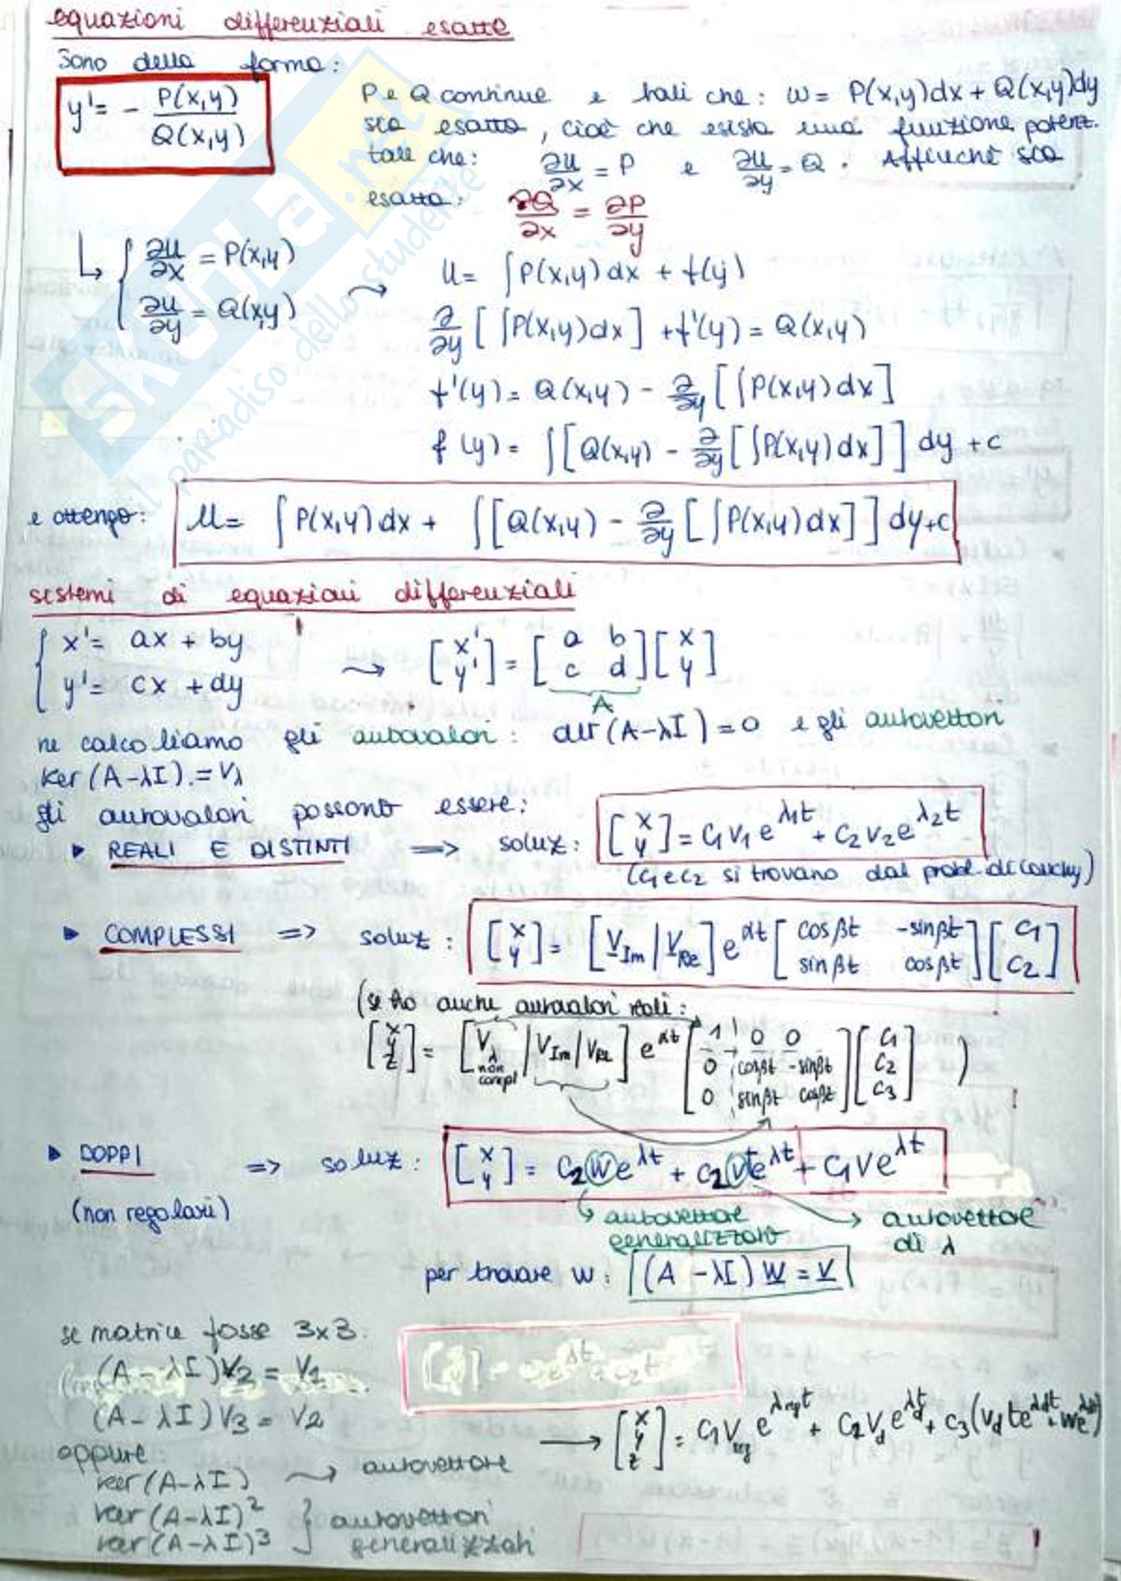 equazioni differenziali esatte
Sono della forma:
y' = - P(x,y) / Q(x,y)
P e Q continue e tali che: ω = P(x,y)dx + Q(x,y)dy
sia esatta, cioè che esista una funzione potenz.
tale che: ∂u/∂x = P e ∂u/∂y = Q. Affinché sia
esatta: ∂Q/∂x = ∂P/∂y
↳ { ∂u/∂x = P(x,y)
∂u/∂y = Q(x,y)
⇝ u = ∫P(x,y)dx + f(y)
∂/∂y [∫P(x,y)dx] + f'(y) = Q(x,y)
f'(y) = Q(x,y) - ∂/∂y [∫P(x,y)dx]
f(y) = ∫[Q(x,y) - ∂/∂y [∫P(x,y)dx]] dy + c
e ottengo: u = ∫P(x,y)dx + ∫[Q(x,y) - ∂/∂y [∫P(x,y)dx]] dy + c
sistemi di equazioni differenziali
{ x' = ax + by
y' = cx + dy
⇝ [x' y'] = [a b c d] [x y]
A
ne calcoliamo gli autovalori: det(A-λI) = 0 e gli autovettori
Ker(A-λI) = Vλ
gli autovalori possono essere:
▸ REALI E DISTINTI ⇒ soluz: [x y] = c1 v1 e^λ1t + c2 v2 e^λ2t
(c1 e c2 si trovano dal probl. di Cauchy)
▸ COMPLESSI ⇒ soluz: [x y] = [V_Im | V_Re] e^αt [cosβt -sinβt sinβt cosβt] [c1 c2]
(se ho anche autovalori reali:
[x y z] = [V_λ non compl | V_Im | V_Re] e^αt [1 0 0 0 cosβt -sinβt 0 sinβt cosβt] [c1 c2 c3] )
▸ DOPPI ⇒ soluz: [x y] = c2 w e^λt + c2 v t e^λt + c1 v e^λt
(non regolari)
↳ autovettore generalizzato
→ autovettore di λ
per trovare w: (A-λI) w = v
se matrice fosse 3x3:
(A-λI)V2 = V1
(A-λI)V3 = V2
→ [x y z] = c1 V_reg e^λreg t + c2 V_d e^λd t + c3 (V_d t e^λd t + w e^λd t)
oppure
ker(A-λI) ⇝ autovettore
ker(A-λI)²
ker(A-λI)³
} autovettori generalizzati
skuola.net
il paradiso dello studente